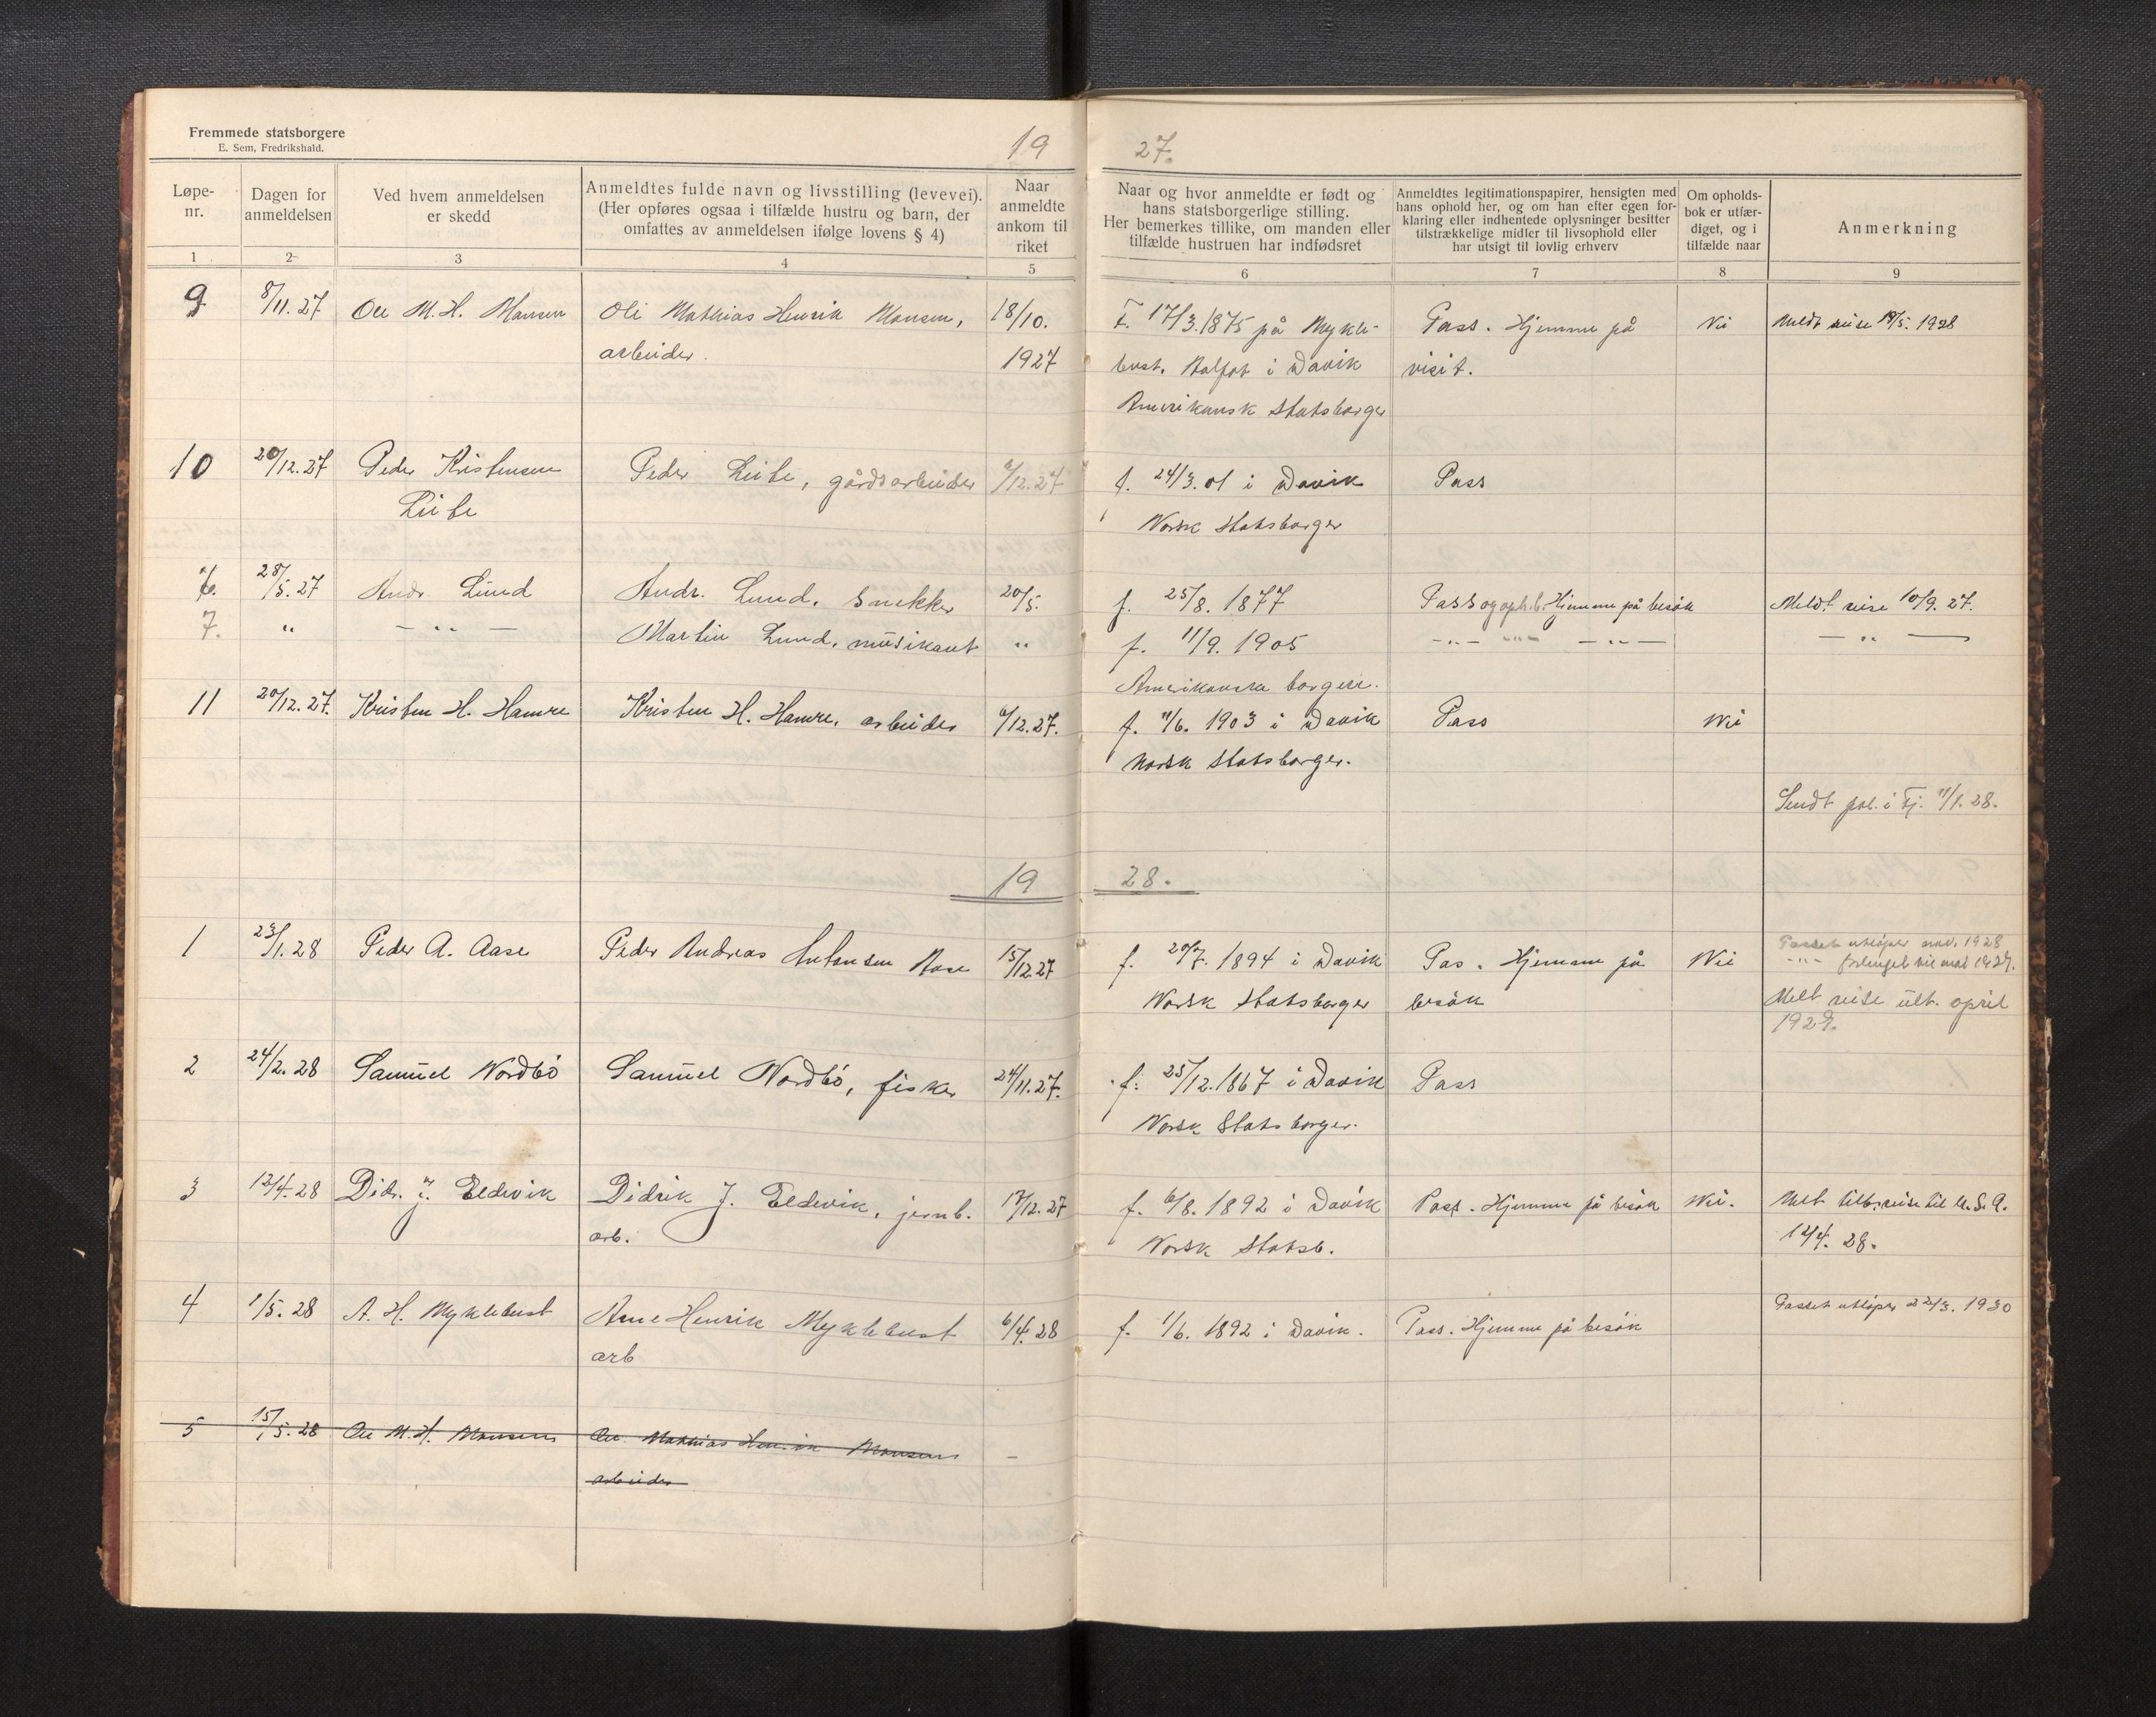 Fremmede statsborgere
E. Sem, Fredrikshald.
19 27.
Løpe-
nr.
Dagen for
anmeldelsen
Ved hvem anmeldelsen
er skedd
Anmeldtes fulde navn og livsstilling (levevei).
(Her opføres ogsaa i tilfælde hustru og barn, der
omfattes av anmeldelsen ifølge lovens § 4)
Naar
anmeldte
ankom til
riket
Naar og hvor anmeldte er født og
hans statsborgerlige stilling.
Her bemerkes tillike, om manden eller
tilfælde hustruen har indfødsret
Anmeldtes legitimationspapirer, hensigten med
hans ophold her, og om han efter egen for-
klaring eller indhentede oplysninger besitter
tilstrækkelige midler til livsophold eller
har utsigt til lovlig erhverv
Om opholds-
bok er utfær-
diget, og i
tilfælde naar
Anmerkning
1 2 3 4 5 6 7 8 9
9 8/11.27 Ole M. H. Mansen Ole Mathias Henrik Mansen, 18/10. F. 17/3.1875 på Mykle- Pass. Hjemme på Nei Meldt reise 18/5. 1928
arbeider. 1927 bust, Aalfot i Davik visit.
Amerikansk Statsborger
10 20/12.27 Peder Kristensen Peder Leite, gårdsarbeider /12.27 f. 24/3.01 i Davik Pass
Leite Norsk Statsborger
6. 28/5.27 Andr. Lund Andr. Lund, snekker 20/5. f. 25/8. 1877 Pass og oph.b. Hjemme på besøk Meldt reise 10/9. 27.
7. " — " — Martin Lund, musikant " f. 11/9. 1905 — " — " — " — — " —
Amerikanske borgere.
11 20/12.27. Kristen H. Hamre Kristen H. Hamre, arbeider 6/12.27. f. 11/6. 1903 i Davik Pass Nei
Norsk Statsborger.
Sendt pol. i Fj. 11/1.28.
19 28.
1 23/1.28 Peder A. Aase Peder Andreas Antonsen Aase 15/12.27 f. 20/7. 1894 i Davik Pas. Hjemme på Nei Passet utløper nov. 1928
— " — forlenget til mai 1929.
Norsk Statsborger besøk Melt reise ult. april
1929.
2 24/2.28 Samuel Nordbö Samuel Nordbö, fisker 24/11.27. f. 25/12.1867 i Davik Pass
Norsk Statsborger.
3 12/4.28 Didr. J. Eldevik Didrik J. Eldevik, jernb. 17/12.27 f. 6/8. 1892 i Davik Pass. Hjemme på besøk Nei. Melt tilb.reise til U.S.A.
arb. Norsk Statsb. 12/4. 28.
4 1/5.28 A. H. Myklebust Arne Henrik Myklebust 6/4.28 f. 1/6. 1892 i Davik. Pass. Hjemme på besøk Passet utløper 22/3. 1930
arb
5 15/5.28 Ole M. H. Mansen Ole Mathias Henrik Mansen —
arbeider